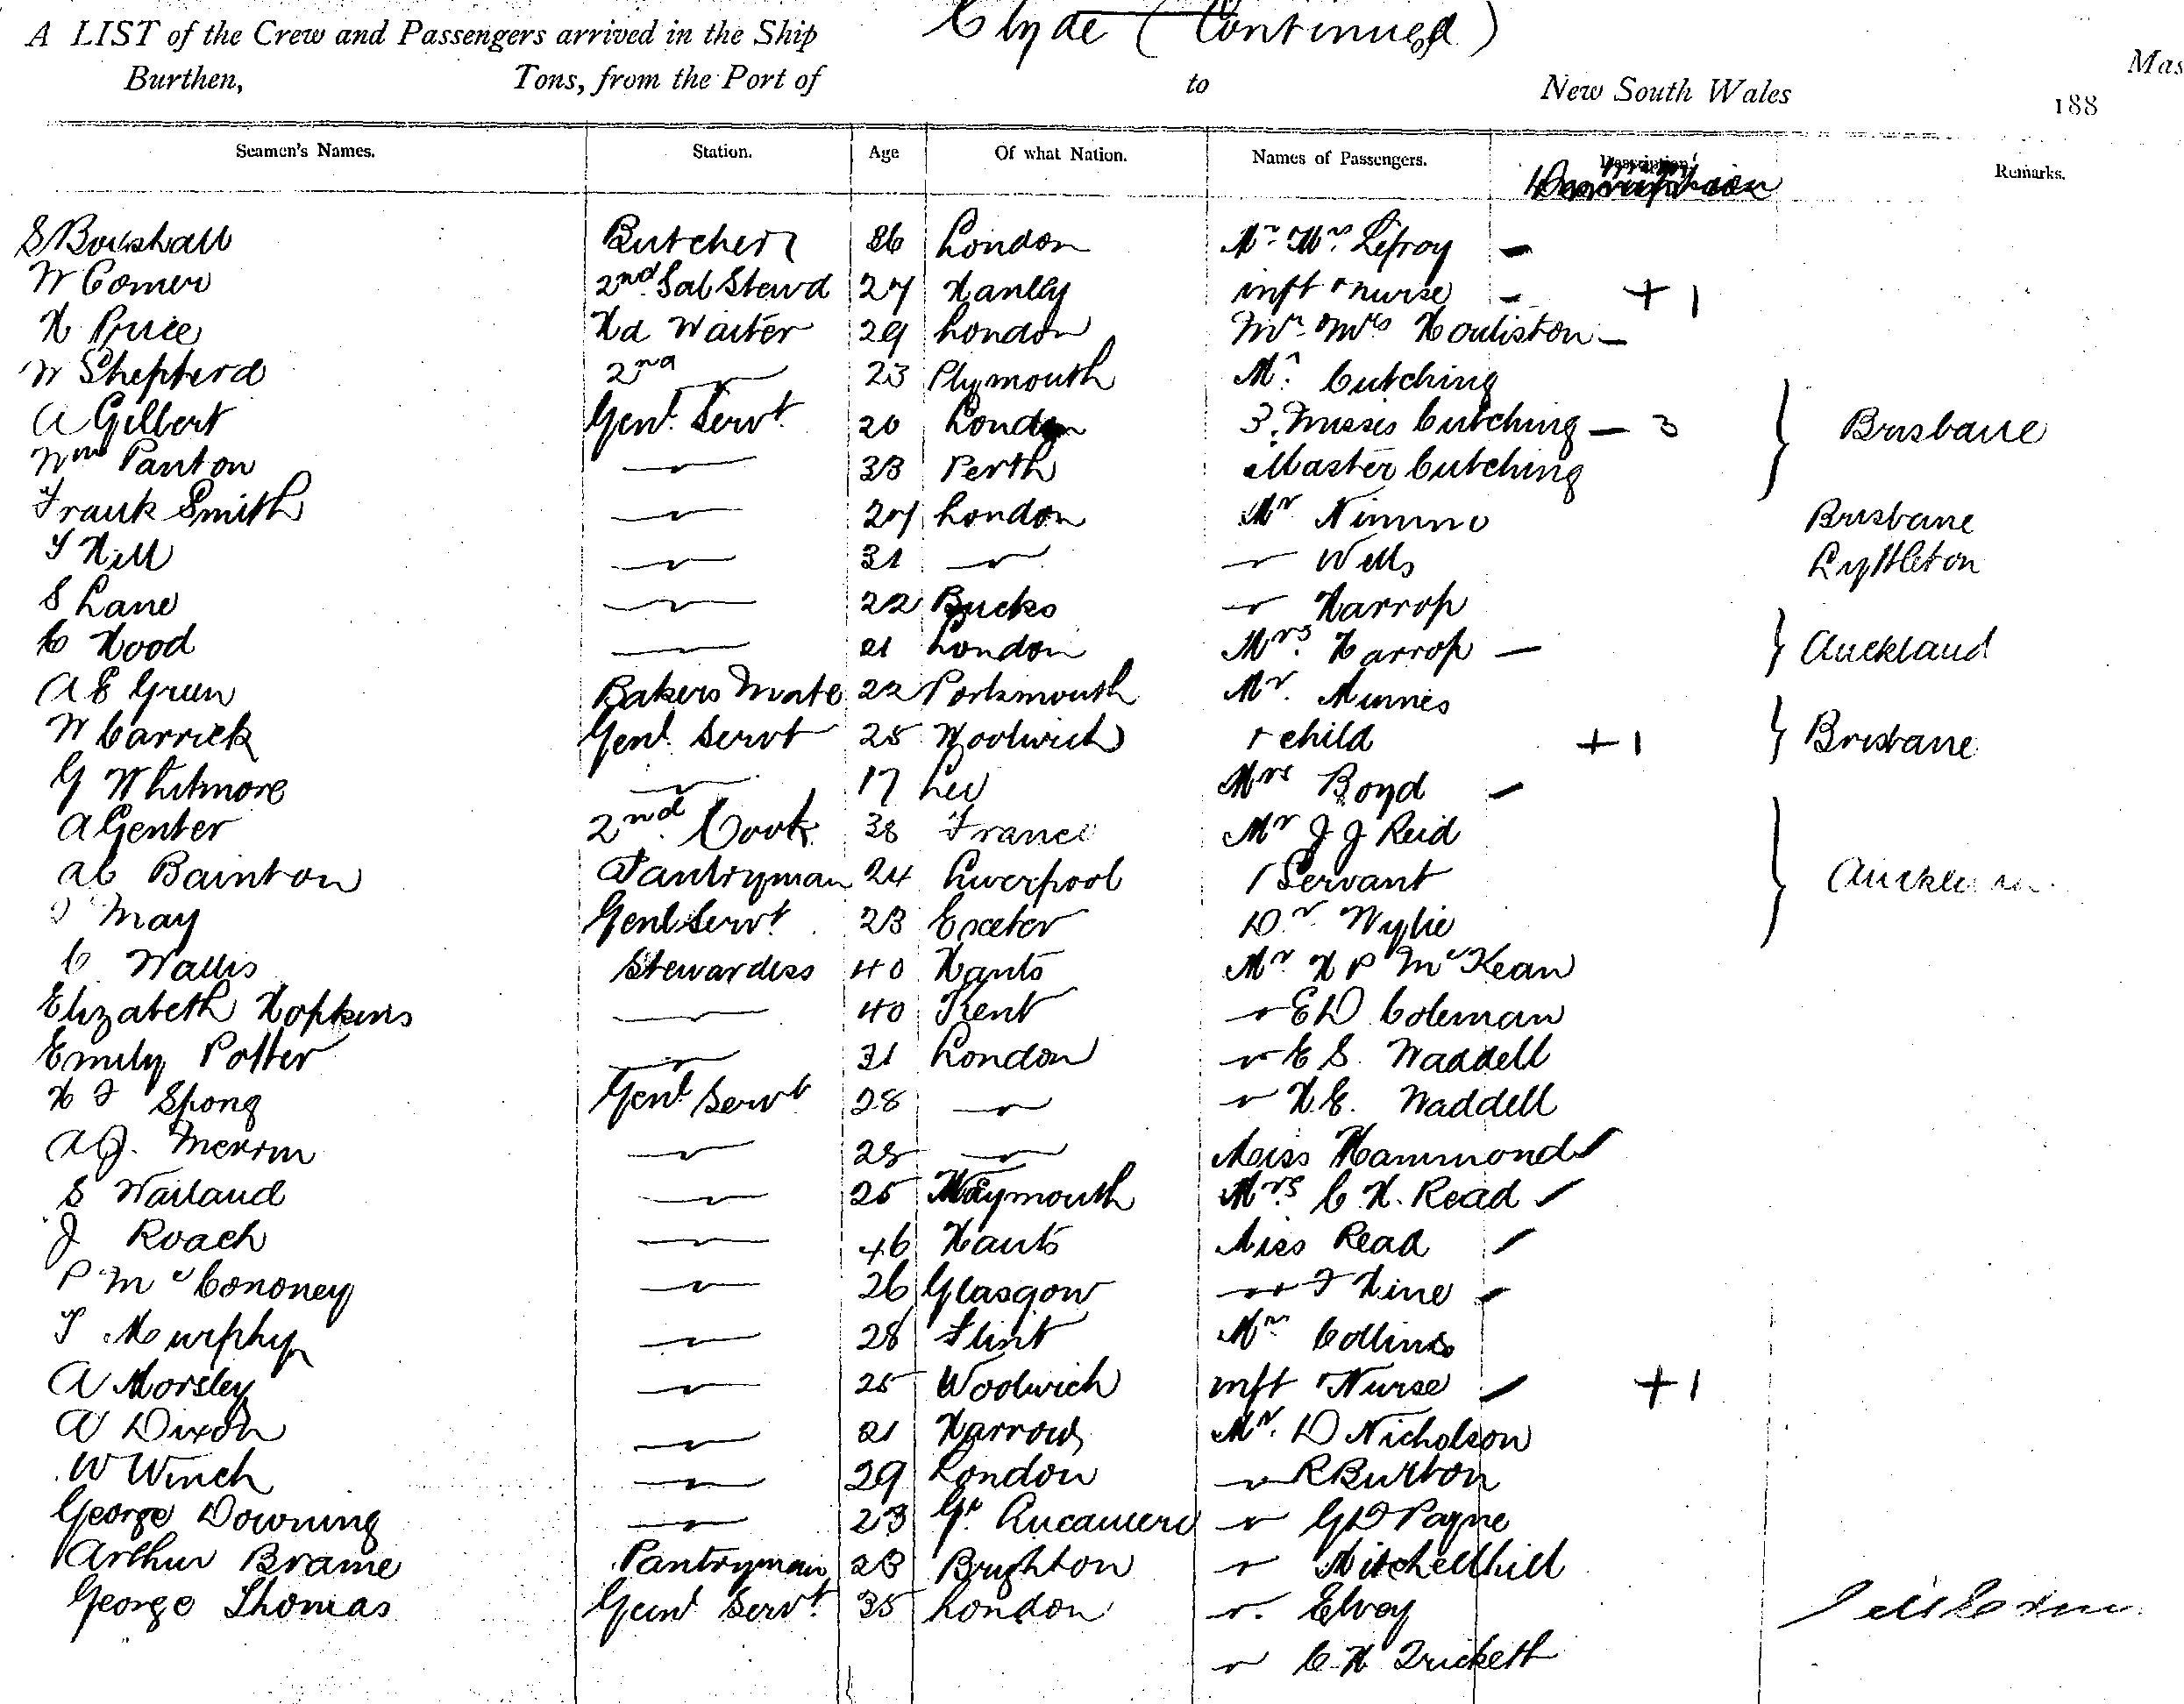 A LIST of the Crew and Passengers arrived in the Ship Clyde (Continued) of
Burthen, Tons, from the Port of to New South Wales 188
Seamen's Names. Station. Age Of what Nation. Names of Passengers. Description Remarks.
S Boxshall Butcher 26 London Mr Mrs Lefroy –
W Comer 2nd Sal Stewd 27 Hanley inft & nurse – +1
H Price Hd Waiter 29 London Mr Mrs Houliston –
W Shepherd 2nd 〃 23 Plymouth Mr. Cutching
A Gilbert Genl Servt 20 London 3 Misses Cutching – 3 } Brisbane
Wm Panton 〃 33 Perth Master Cutching
Frank Smith 〃 27 London Mr Nimmo Brisbane
T Hill 〃 31 〃 〃 Wells Lyttleton
S Lane 〃 22 Bucks 〃 Harrop
C Hood 〃 21 London Mrs Harrop – } Auckland
A E Green Bakers Mate 22 Portsmouth Mr. Munnes
W Carrick Genl Servt 25 Woolwich & child +1 } Brisbane
G Whitmore 〃 17 Lee Mrs Boyd –
A Genter 2nd Cook 38 France Mr J J Reid
A C Bainton Pantryman 24 Liverpool 1 Servant }
May Genl Servt 23 Exeter Dr Wylie
C Wallis Stewardess 40 Hants Mr H P McKean
Elizabeth Hopkins 〃 40 Kent 〃 E D Coleman
Emily Potter 〃 31 London 〃 E S. Waddell
H F Spong Genl Servt 28 〃 〃 H.E. Waddell
A J. Merrin 〃 28 〃 Miss Hammond
S Wailand 〃 25 Weymouth Mrs C H. Read
J Roach 〃 46 Hants Miss Read
P McCononey 〃 26 Glasgow 〃 F Hine
T Murphy 〃 28 Flint Mrs Collins
A Morsley 〃 25 Woolwich inft Nurse +1
A Dixon 〃 21 Harrow Mr. D Nicholson
W Winch 〃 29 London 〃 R Burton
George Downing 〃 23 Gt. 〃 G D Payne
Arthur Brame Pantryman 23 Brighton 〃 Mitchelhill
George Thomas Genl Servt 35 London 〃 Elvey
〃 C H Trickett